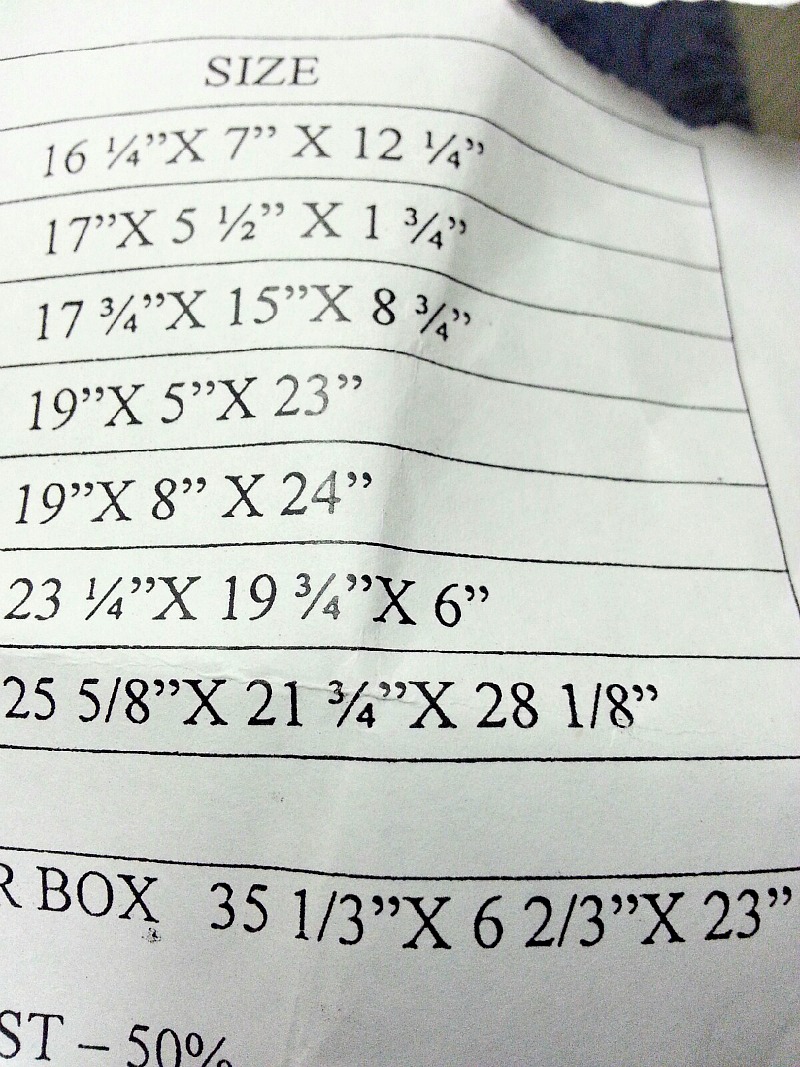 SIZE
16 ¼”X 7” X 12 ¼”
17”X 5 ½” X 1 ¾”
17 ¾”X 15”X 8 ¾”
19”X 5”X 23”
19”X 8” X 24”
23 ¼”X 19 ¾”X 6”
25 5/8”X 21 ¾”X 28 1/8”
R BOX 35 1/3”X 6 2/3”X 23”
ST – 50%